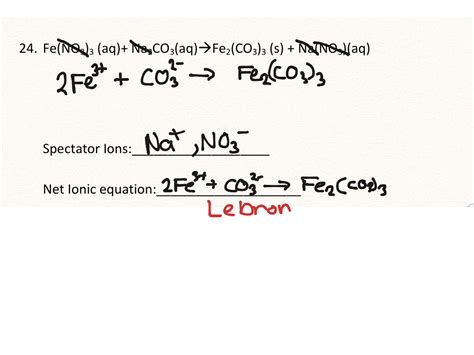 24. Fe(NO₃)₃ (aq)+ Na₂CO₃(aq)→Fe₂(CO₃)₃ (s) + Na(NO₃)(aq)
2Fe³⁺ + CO₃²⁻ → Fe₂(CO₃)₃
Spectator Ions: Na⁺, NO₃⁻
Net Ionic equation: 2Fe³⁺ + CO₃²⁻ → Fe₂(CO₃)₃
Lebron